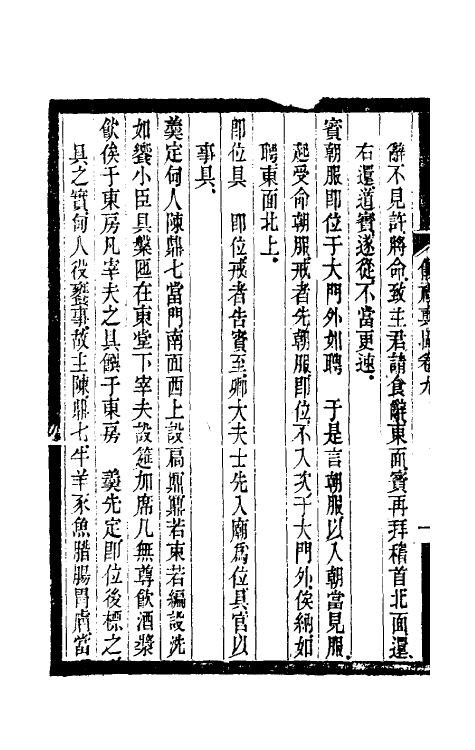 辭不見許將命致主君請食辭東面賓再拜稽首北面還
右還道賓遂從不當更速
賓朝服即位于大門外如聘　于是言朝服以入朝當見服
起受命朝服戒者先朝服即位不入次于大門外俟納如
聘東面北上
即位具　即位戒者告賓至卿大夫士先入廟爲位具官以
事具
羹定甸人陳鼎七當門南面西上設扃鼏鼏若束若編設洗
如饗小臣具槃匜在東堂下宰夫設筵加席几無尊飲酒漿
飲俟于東房凡宰夫之具饌于東房　羹先定即位後標之
具之實甸人役饔事故主陳鼎七牛羊豕魚腊腸胃膚當
儀禮
卷九
一